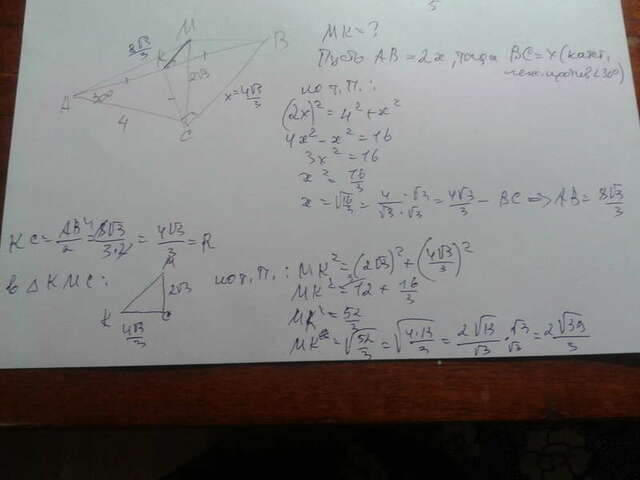 5
M
B
K
A
C
8√3/3
2√3
30°
4
x=4√3/3
MK=?
Пусть AB=2x, тогда BC=x (катет,
леж. против <30°)
по т.П.:
(2x)²=4²+x²
4x²-x²=16
3x²=16
x²=16/3
x=√16/3=4/√3·√3/√3=4√3/3 - BC ⇒ AB=8√3/3
KC=AB/2=8√3/3·2=4√3/3=R
в △KMC:
2√3
K
C
4√3/3
по т.П.: MK²=(2√3)²+(4√3/3)²
MK²=12+16/3
MK²=52/3
MK=√52/3=√4·13/3=2√13/√3·√3/√3=2√39/3